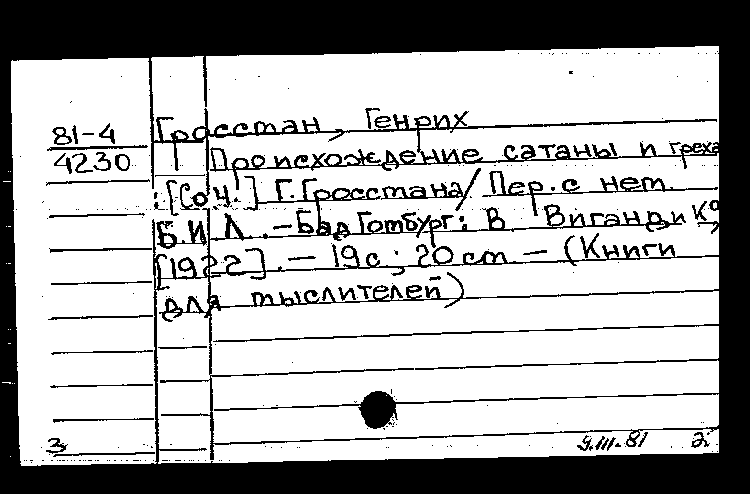 81-4 Гросстан, Генрих
4230 Происхождение сатаны и греха
: [Соч.] Г. Гросстана / Пер. с нем.
Б.И Л. - Бад Гомбург: В Виганд и Кº,
[1922]. - 19 с; 20 cm - (Книги
для мыслителей)
3 9.III-81 2.